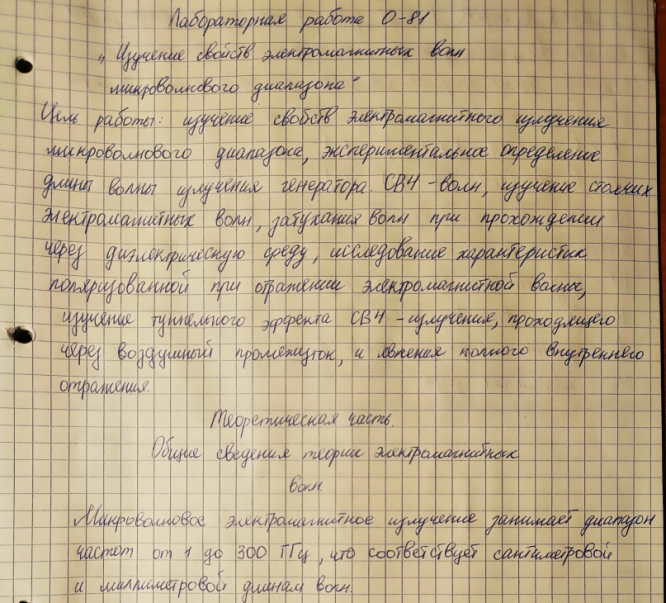 Лабораторная работа О-81
„Изучение свойств электромагнитных волн
микроволнового диапазона"
Цель работы: изучение свойств электромагнитного излучения
микроволнового диапазона, экспериментальное определение
длины волны излучения генератора СВЧ-волн, изучение стоячих
электромагнитных волн, затухания волн при прохождении
через диэлектрическую среду, исследование характеристик
поляризованной при отражении электромагнитной волны,
изучение туннельного эффекта СВЧ-излучения, проходящего
через воздушный промежуток, и явления полного внутреннего
отражения.
Теоретическая часть.
Общие сведения теории электромагнитных
волн
Микроволновое электромагнитное излучение занимает диапазон
частот от 1 до 300 ГГц, что соответствует сантиметровой
и миллиметровой длинам волн.